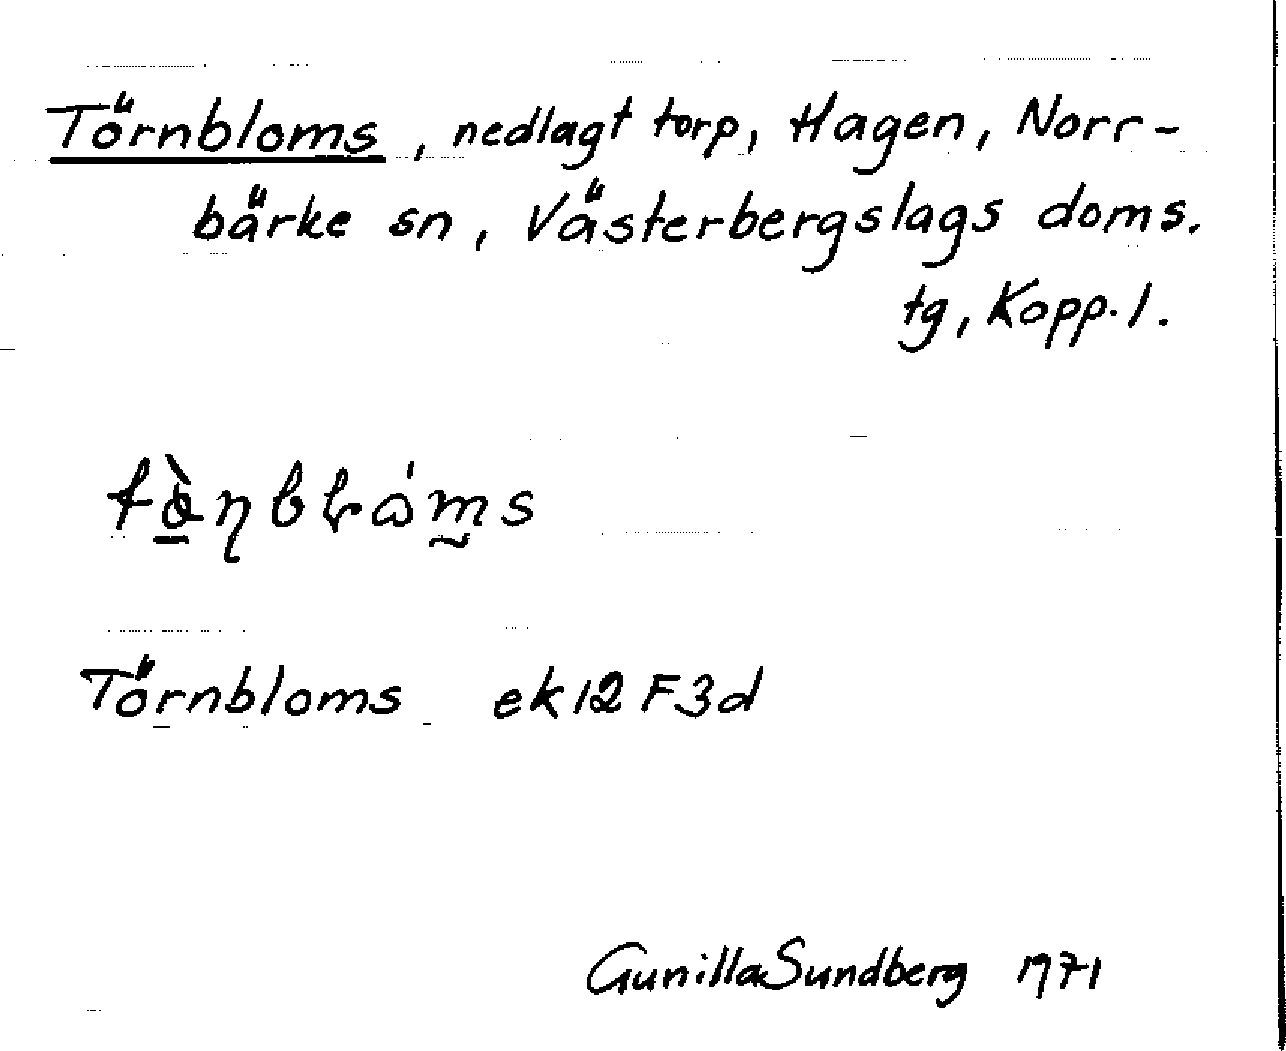 Törnbloms, nedlagt torp, Hagen, Norr-
bärke sn, Västerbergslags doms.
tg, Kopp. l.
Törnbloms ek 12 F 3d
Gunilla Sundberg 1971